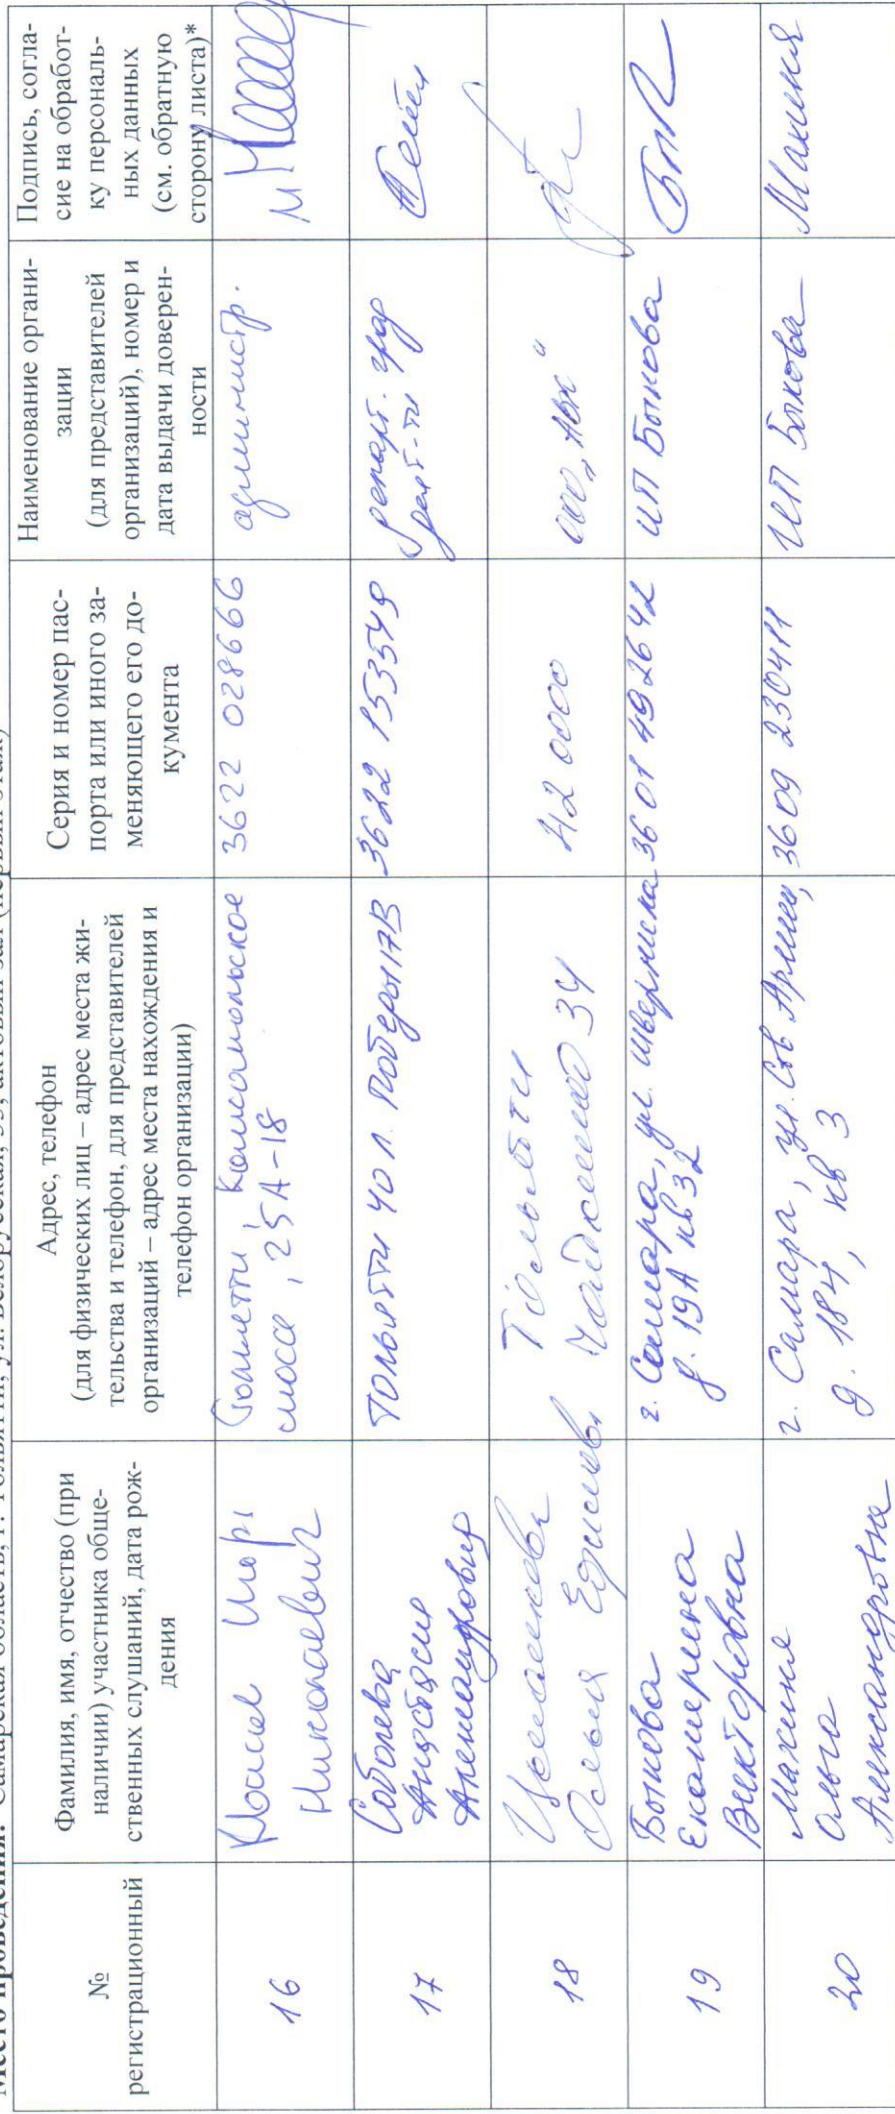 Место проведения: Самарская область, г. Тольятти, ул. Белорусская, 33, актовый зал (первый этаж)
№
регистрационный
Фамилия, имя, отчество (при
наличии) участника обще-
ственных слушаний, дата рож-
дения
Адрес, телефон
(для физических лиц – адрес места жи-
тельства и телефон, для представителей
организаций – адрес места нахождения и
телефон организации)
Серия и номер пас-
порта или иного за-
меняющего его до-
кумента
Наименование органи-
зации
(для представителей
организаций), номер и
дата выдачи доверен-
ности
Подпись, согла-
сие на обработ-
ку персональ-
ных данных
(см. обратную
сторону листа)*
16
Николаевич
Тольятти, Комсомольское
шоссе, 25А-18
3622 028666
администр.
17
Соболева
Анастасия
Александровна
Тольятти 40 л. Победы 17В
3622 153549
18
Тольятти
34
42 0000
ООО „АВК"
19
Быкова
Екатерина
Викторовна
г. Самара, ул. Шверника
д. 19А кв 32
36 01 492642
ИП Быкова
20
Махиня
Ольга
Александровна
г. Самара, ул. Сов Армии,
д. 184, кв 3
36 09 230411
ИП Быкова
Махиня